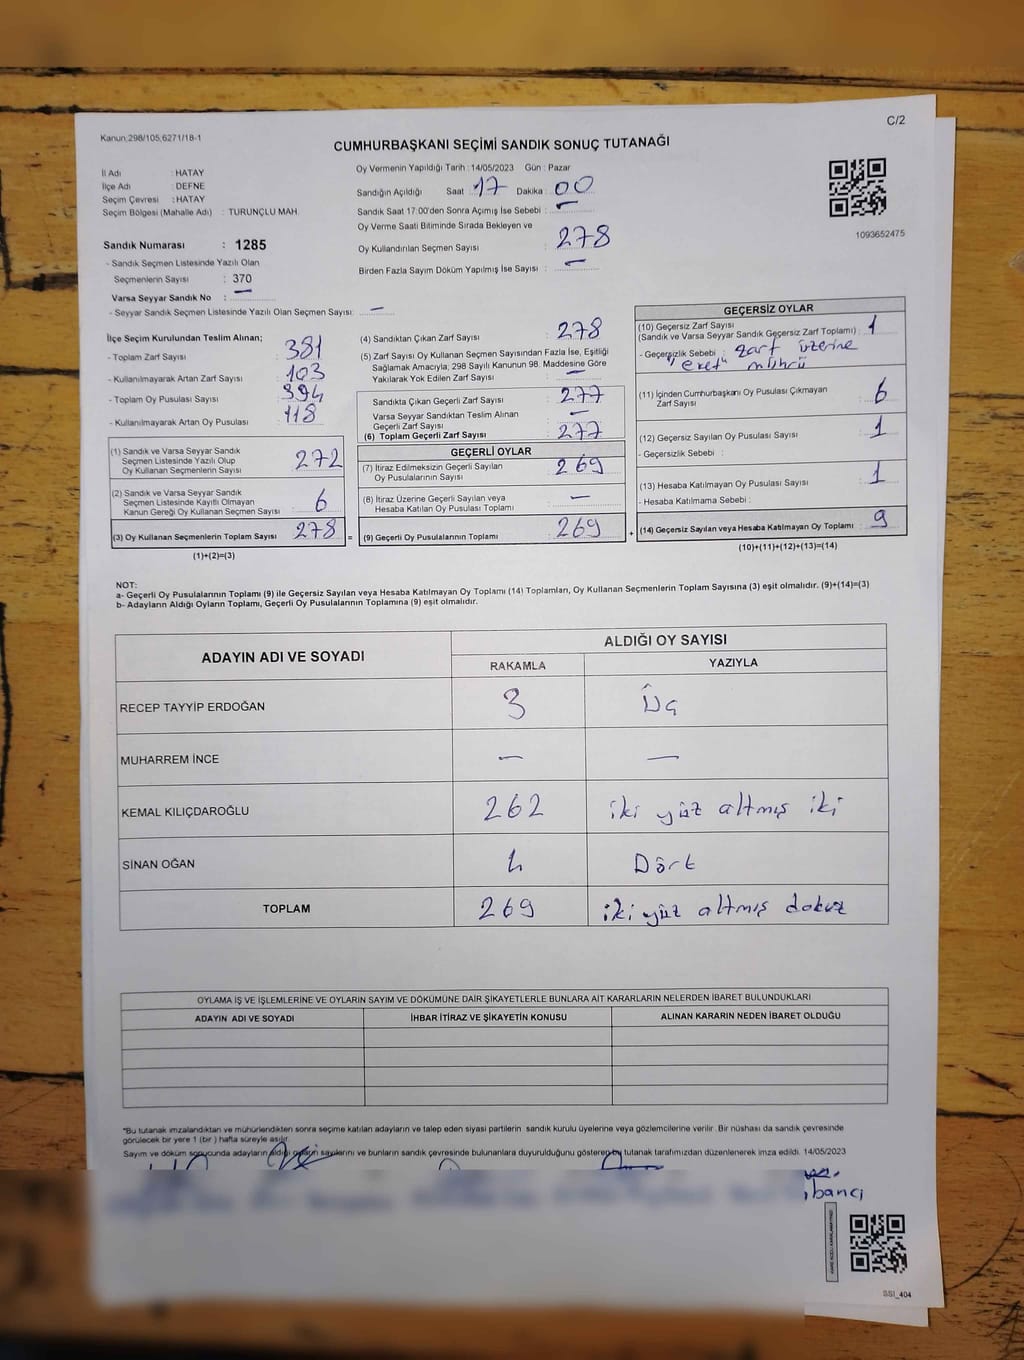 C/2
Kanun:298/105,6271/18-1
CUMHURBAŞKANI SEÇİMİ SANDIK SONUÇ TUTANAĞI
İl Adı : HATAY
İlçe Adı : DEFNE
Seçim Çevresi : HATAY
Seçim Bölgesi (Mahalle Adı) : TURUNÇLU MAH.
Sandık Numarası : 1285
- Sandık Seçmen Listesinde Yazılı Olan
Seçmenlerin Sayısı : 370
Varsa Seyyar Sandık No : —
- Seyyar Sandık Seçmen Listesinde Yazılı Olan Seçmen Sayısı: —
Oy Vermenin Yapıldığı Tarih : 14/05/2023 Gün : Pazar
Sandığın Açıldığı Saat : 17 Dakika : 00
Sandık Saat 17:00'den Sonra Açımış İse Sebebi : —
Oy Verme Saati Bitiminde Sırada Bekleyen ve
Oy Kullandırılan Seçmen Sayısı : 278
Birden Fazla Sayım Döküm Yapılmış İse Sayısı : —
1093652475
İlçe Seçim Kurulundan Teslim Alınan;
- Toplam Zarf Sayısı : 381
- Kullanılmayarak Artan Zarf Sayısı : 103
- Toplam Oy Pusulası Sayısı : 394
- Kullanılmayarak Artan Oy Pusulası : 118
(1) Sandık ve Varsa Seyyar Sandık
Seçmen Listesinde Yazılı Olup
Oy Kullanan Seçmenlerin Sayısı : 272
(2) Sandık ve Varsa Seyyar Sandık
Seçmen Listesinde Kayıtlı Olmayan
Kanun Gereği Oy Kullanan Seçmen Sayısı : 6
(3) Oy Kullanan Seçmenlerin Toplam Sayısı : 278 =
(1)+(2)=(3)
(4) Sandıktan Çıkan Zarf Sayısı : 278
(5) Zarf Sayısı Oy Kullanan Seçmen Sayısından Fazla İse, Eşitliği
Sağlamak Amacıyla; 298 Sayılı Kanunun 98. Maddesine Göre
Yakılarak Yok Edilen Zarf Sayısı : —
Sandıkta Çıkan Geçerli Zarf Sayısı : 277
Varsa Seyyar Sandıktan Teslim Alınan
Geçerli Zarf Sayısı : —
(6) Toplam Geçerli Zarf Sayısı : 277
GEÇERLİ OYLAR
(7) İtiraz Edilmeksizin Geçerli Sayılan
Oy Pusulalarının Sayısı : 269
(8) İtiraz Üzerine Geçerli Sayılan veya
Hesaba Katılan Oy Pusulası Toplamı : —
(9) Geçerli Oy Pusulalarının Toplamı : 269 +
GEÇERSİZ OYLAR
(10) Geçersiz Zarf Sayısı
(Sandık ve Varsa Seyyar Sandık Geçersiz Zarf Toplamı) : 1
- Geçersizlik Sebebi : zarf üzerine
"evet" mührü
(11) İçinden Cumhurbaşkanı Oy Pusulası Çıkmayan
Zarf Sayısı : 6
(12) Geçersiz Sayılan Oy Pusulası Sayısı : 1
- Geçersizlik Sebebi :
(13) Hesaba Katılmayan Oy Pusulası Sayısı : 1
- Hesaba Katılmama Sebebi :
(14) Geçersiz Sayılan veya Hesaba Katılmayan Oy Toplamı : 9
(10)+(11)+(12)+(13)=(14)
NOT:
a- Geçerli Oy Pusulalarının Toplamı (9) ile Geçersiz Sayılan veya Hesaba Katılmayan Oy Toplamı (14) Toplamları, Oy Kullanan Seçmenlerin Toplam Sayısına (3) eşit olmalıdır. (9)+(14)=(3)
b- Adayların Aldığı Oyların Toplamı, Geçerli Oy Pusulalarının Toplamına (9) eşit olmalıdır.
ADAYIN ADI VE SOYADI
ALDIĞI OY SAYISI
RAKAMLA YAZIYLA
RECEP TAYYİP ERDOĞAN 3 Üç
MUHARREM İNCE — —
KEMAL KILIÇDAROĞLU 262 iki yüz altmış iki
SİNAN OĞAN 4 Dört
TOPLAM 269 iki yüz altmış dokuz
OYLAMA İŞ VE İŞLEMLERİNE VE OYLARIN SAYIM VE DÖKÜMÜNE DAİR ŞİKAYETLERLE BUNLARA AİT KARARLARIN NELERDEN İBARET BULUNDUKLARI
ADAYIN ADI VE SOYADI İHBAR İTİRAZ VE ŞİKAYETİN KONUSU ALINAN KARARIN NEDEN İBARET OLDUĞU
*Bu tutanak imzalandıktan ve mühürlendikten sonra seçime katılan adayların ve talep eden siyasi partilerin sandık kurulu üyelerine veya gözlemcilerine verilir. Bir nüshası da sandık çevresinde
görülecek bir yere 1 (bir) hafta süreyle asılır.
Sayım ve döküm sonucunda adayların aldığı oyların sayılarını ve bunların sandık çevresinde bulunanlara duyurulduğunu gösteren bu tutanak tarafımızdan düzenlenerek imza edildi. 14/05/2023
SSI_404